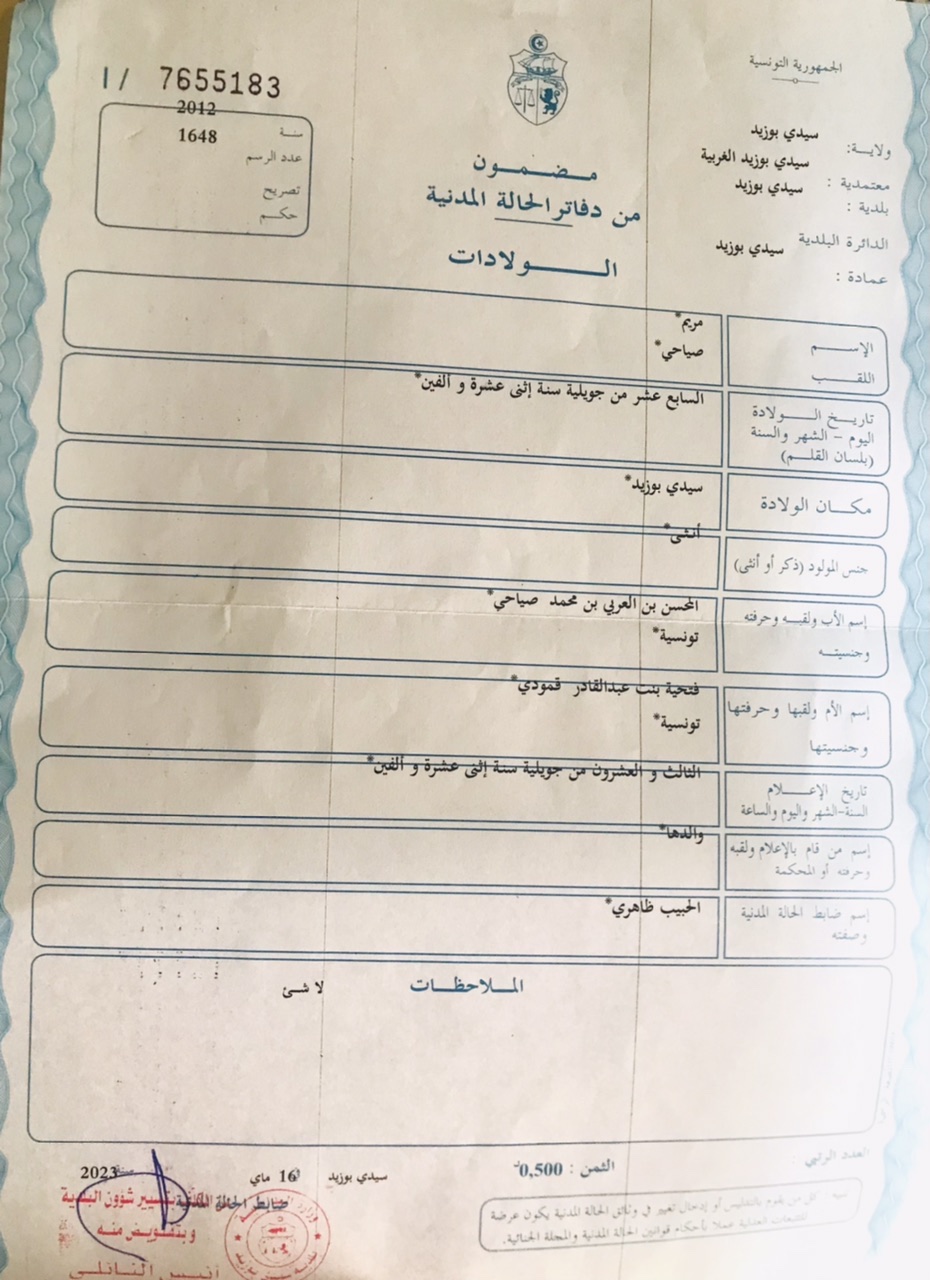 الجمهورية التونسية
ا / 7655183
2012
سنة
1648
عدد الرسم
تصريح
حكم
ولاية: سيدي بوزيد
معتمدية : سيدي بوزيد الغربية
بلدية : سيدي بوزيد
الدائرة البلدية سيدي بوزيد
عمادة :
مضمون
من دفاتر الحالة المدنية
الولادات
الإسم مريم*
اللقب صياحي*
تاريخ الولادة السابع عشر من جويلية سنة إثنى عشرة و ألفين*
اليوم - الشهر والسنة
(بلسان القلم)
مكان الولادة سيدي بوزيد*
جنس المولود (ذكر أو أنثى) أنثى*
إسم الأب ولقبه وحرفته المحسن بن العربي بن محمد صياحي*
وجنسيته تونسية*
إسم الأم ولقبها وحرفتها فتحية بنت عبدالقادر قمودي*
وجنسيتها تونسية*
تاريخ الإعلام الثالث و العشرون من جويلية سنة إثنى عشرة و ألفين*
السنة-الشهر واليوم والساعة
إسم من قام بالإعلام ولقبه والدها*
وحرفته أو المحكمة
إسم ضابط الحالة المدنية الحبيب ظاهري*
وصفته
الملاحظات
لا شئ
العدد الرتبي :
الثمن : 0,500
سيدي بوزيد 16 ماي سنة 2023
ضابط الحالة المدنية
تسيير شؤون البلدية
وبتفويض منه
أنيس النائلي
كل من يقوم بالتدليس أو إدخال تغيير في وثائق الحالة المدنية يكون عرضة
للتتبعات العدلية عملا بأحكام قوانين الحالة المدنية والمجلة الجنائية.